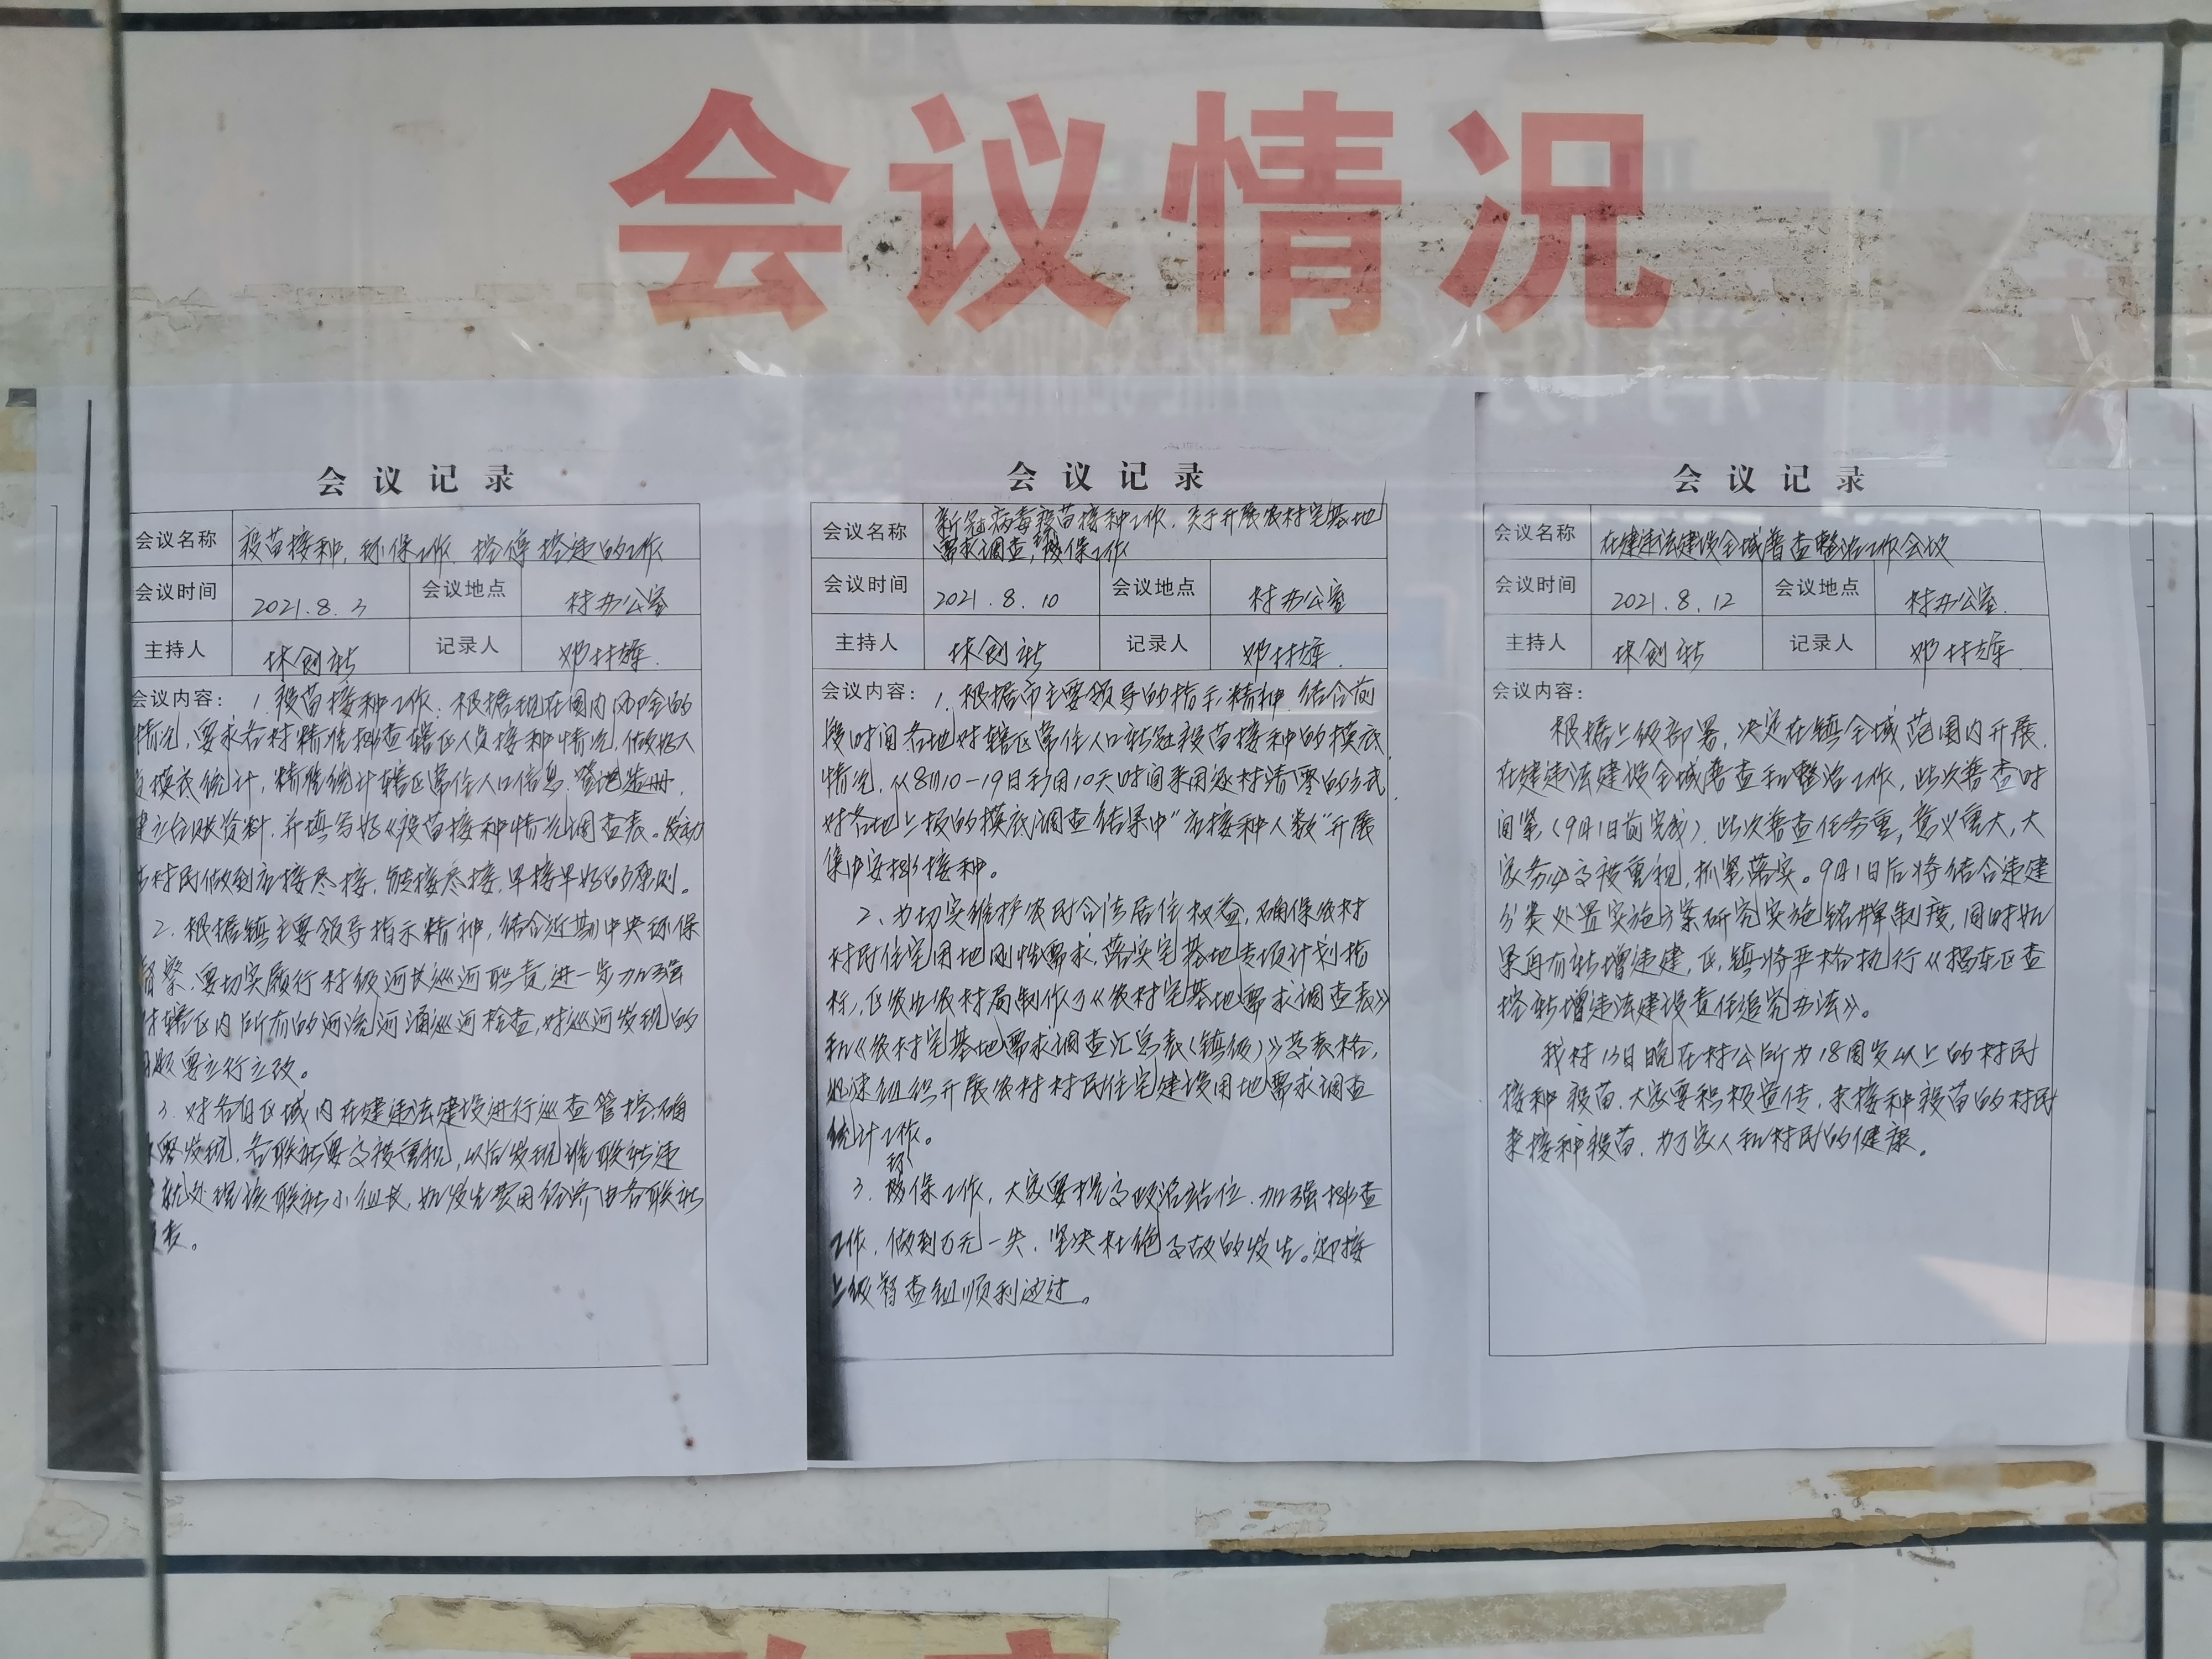 会议情况
会议记录
会议名称 疫苗接种,环保工作.控停控违的工作
会议时间 2021.8.3 会议地点 村办公室
主持人 林创新 记录人 邓村雄.
会议内容: 1.疫苗接种工作:根据现在国内风险的
情况,要求各村精准排查辖区人员接种情况,做好人
摸底统计,精准统计辖区常住人口信息.登记造册.
建立台账资料.并填写好《疫苗接种情况调查表。发动
村民做到应接尽接,能接尽接,早接早好的原则。
2.根据镇主要领导指示精神,结合近期中央环保
督察.要切实履行村级河长巡河职责,进一步加强
对辖区内所有的河流河涌巡河检查,对巡河发现的
问题要立行立改。
3.对各自区域内在建违法建设进行巡查管控.确
发现.各联社要高度重视,以后发现谁联社违
就处理该联社小组长,如发生费用经济由各联社
负责。
会议记录
会议名称 新冠病毒疫苗接种工作.关于开展农村宅基地
需求调查,环保工作
会议时间 2021.8.10 会议地点 村办公室
主持人 林创新 记录人 邓村雄.
会议内容: 1.根据市主要领导的指示精神.结合前
段时间各地对辖区常住人口新冠疫苗接种的摸底
情况.从8月10-19日利用10天时间采用逐村清零的方式
对各地上报的摸底调查结果中"应接种人数"开展
集中安排接种。
2、为切实维护农村合法居住权益,确保农村
村民住宅用地刚性需求,落实宅基地专项计划指
标,区农业农村局制作了《农村宅基地需求调查表》
和《农村宅基地需求调查汇总表(镇级)》等表格,
迅速组织开展农村村民住宅建设用地需求调查
统计工作。
3.环保工作,大家要提高政治站位.加强排查
工作.做到万无一失.坚决杜绝事故的发生。迎接
上级督查组顺利通过。
会议记录
会议名称 在建违法建设全域普查整治工作会议
会议时间 2021.8.12 会议地点 村办公室.
主持人 林创新 记录人 邓村雄.
会议内容:
根据上级部署,决定在镇全域范围内开展.
在建违法建设全域普查和整治工作,此次普查时
间紧(9月1日前完成).此次普查任务重,意义重大,大
家务必高度重视,抓紧落实。9月1日后将结合违建
分类处置实施方案研究实施铭牌制度,同时如
果再有新增违建,区.镇将严格执行《揭东区查
控新增违法建设责任追究办法》。
我村13日晚在村公所为18周岁以上的村民
接种疫苗.大家要积极宣传.未接种疫苗的村民
来接种疫苗.为了家人和村民的健康。